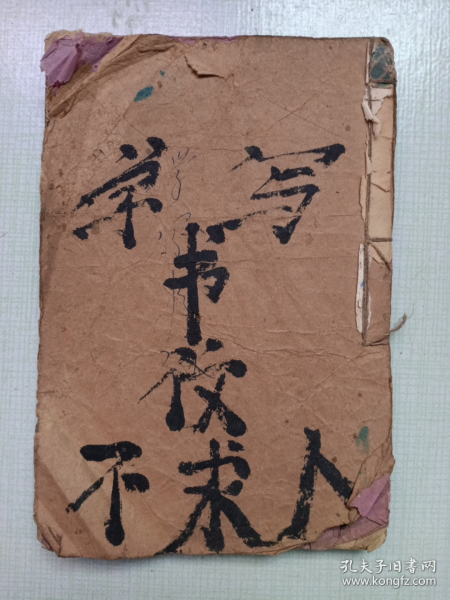 学写
书
仪
不求人
孔夫子旧书网
www.kongfz.com